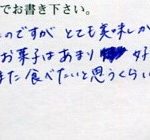 でお書き下さい。
のですが とても美味しか
お菓子はあまり 好
また 食べたいと思うくらい